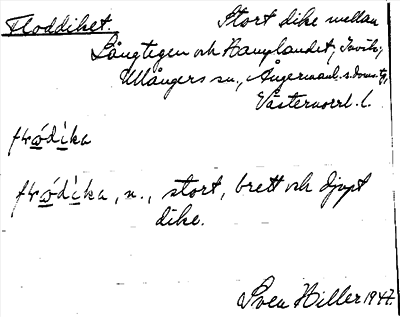 Floddiket. Stort dike mellan
Långtegen och Hamplandet, Invik,
Ullångers sn., Ångermanl. s. doms. tg,
Västernorrl. l.
flod̀ìka
flod̀ìka, n., stort, brett och djupt
dike.
Sven Hiller 1947.